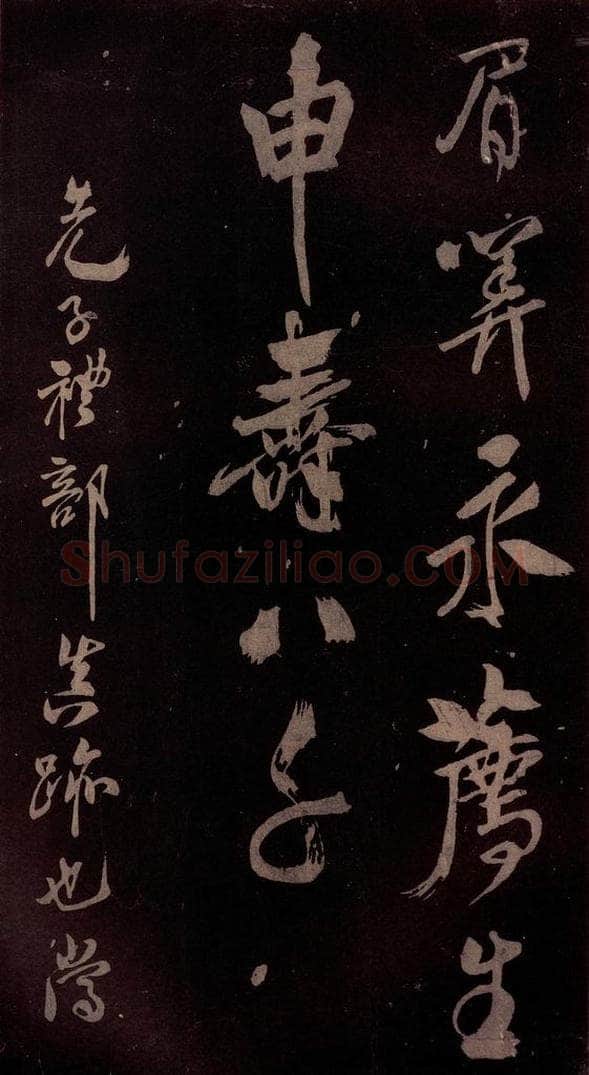 眉筭永薦生
申壽八千
先子禮部真跡也嘗
Shufaziliao.COM